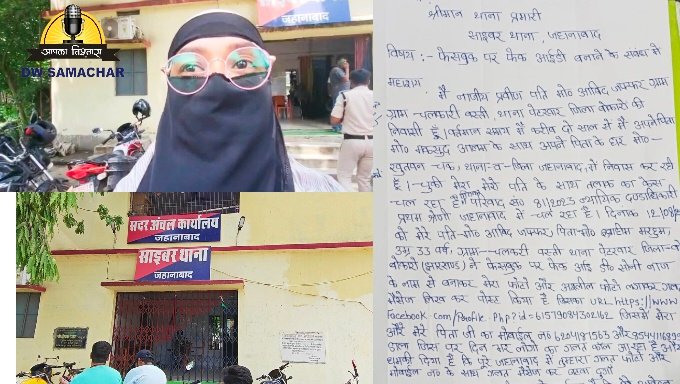 आपका विश्वास
DW SAMACHAR
जहानाबाद
सदर अंचल कार्यालय
जहानाबाद
साइबर थाना
जहानाबाद
श्रीमान थाना प्रभारी
साइबर थाना, जहानाबाद
विषय :- फेसबुक पर फेक आईडी बनाने के संबंध में
महाशय
मैं नाजीय प्रवीण पति मो० आबिद जफ्फर ग्राम
ग्राम - चलकारी बस्ती, थाना पेटरवार जिला बोकारो की
निवासी हूँ। वर्तमान समय में करीब दो साल से मैं अपने पिता
मो० मकसुद आलम के साथ अपने पिता के घर मो०-
चक, थाना व जिला जहानाबाद, में निवास कर रही
है। चुकी मेरा मेरे पति के साथ तलाक का केस
चल रहा है परिवाद सं० 811/2023 न्यायिक दण्डाधिकारी
प्रथम श्रेणी जहानाबाद में चल रहा है। दिनांक 12/08/
को मेरे पति-मो० आबिद जफ्फर, पिता-मो० इब्राहिम मरहुम,
उम्र 33 वर्ष, ग्राम-चलकारी बस्ती थाना पेटरवार जिला-बो
बोकारो (झारखण्ड) ने फेसबुक पर फेक आई डी सोनी नाज
के नाम से बनाकर मेरा फोटो और अश्लील फोटो लगाकर गलत
मैसेज लिख कर पोस्ट किया है जिसका URL https://www
Facebook.com/Profile.Php?id=61579084302162 जिसमें मेरा
और मेरे पिता जी का मोबाईल नं० 6204187563 और
डाला जिस पर दिन भर लोगों का गलत कॉल आ रहा है और
धमकी दिया है कि पुरे जहानाबाद में तुम्हारा गलत फोटो और
मोबाईल नं० के साथ गलत मैसेज कर दुंगा